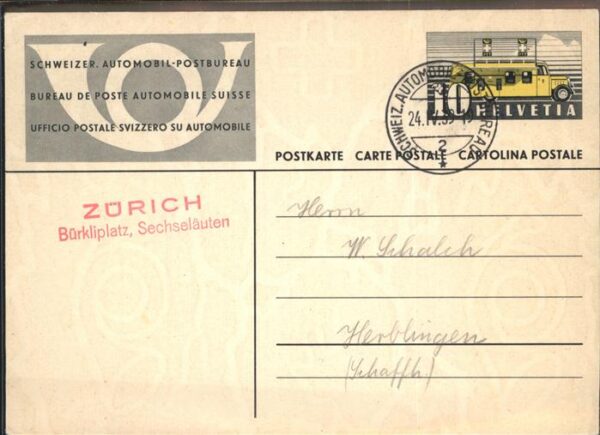 SCHWEIZER. AUTOMOBIL-POSTBUREAU
BUREAU DE POSTE AUTOMOBILE SUISSE
UFFICIO POSTALE SVIZZERO SU AUTOMOBILE
SCHWEIZ. AUTOMOBIL
24.IV.39-19
2
10
HELVETIA
POSTKARTE CARTE POSTALE CARTOLINA POSTALE
ZÜRICH
Bürkliplatz, Sechseläuten
Herrn
W. Schalch
Herblingen
(Schaffh.)